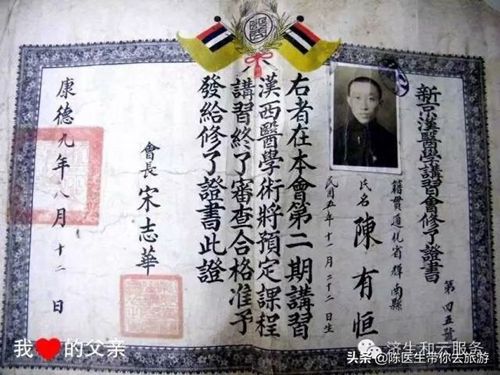 新京漢醫學講習會修了證書
第四五號
籍貫通化省輝南縣
氏名 陳有恒
民國五年十二月二十二日生
右者在本會第二期講習
漢西醫學術將預定課程
講習終了審查合格准予
發給修了證書此證
會長 宋志華
康德九年八月十二日
我❤的父亲
济生和云服务
头条@陈医生带你去旅游